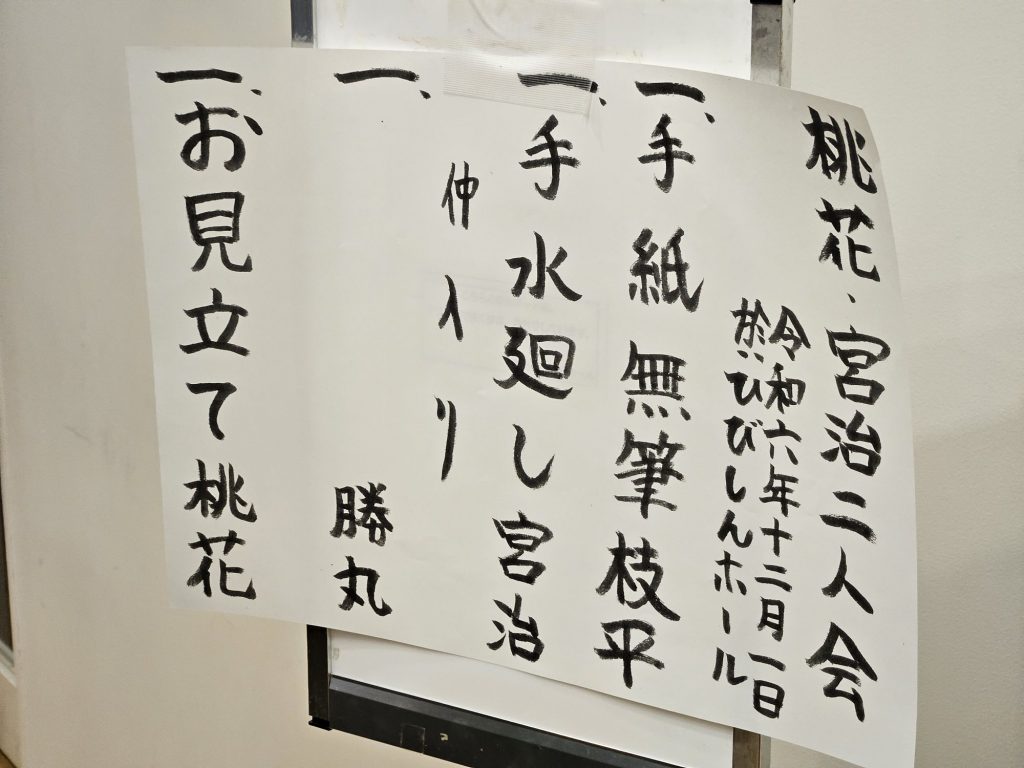 桃花、宮治二人会
令和六年十二月一日
於:ひびしんホール
一、手紙無筆 枝平
一、手水廻し 宮治
仲入り
一、 勝丸
一、お見立て 桃花